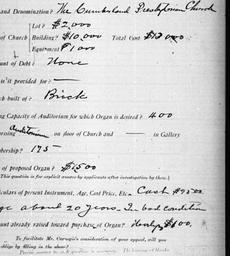 and Denomination? The Cumberland Presbyterian Church
Lot? $2,000
of Church Building? $10,000 Total Cost $13,000
Equipment? $1000
unt of Debt? None
is it provided for? —
ch built of? Brick
ing Capacity of Auditorium for which Organ is desired? 400
prising Auditorium on floor of Church and — in Gallery
mbership? 175
of proposed Organ? $1500
(This question is for explicit answer by applicants after investigation by them.)
culars of present Instrument, Age, Cost Price, Etc. Cash $95.00
ge about 20 years. In bad condition
unt already raised toward purchase of Organ? Nearly $100.
To facilitate Mr. Carnegie's consideration of your appeal, will you
oblige by filling in the above?